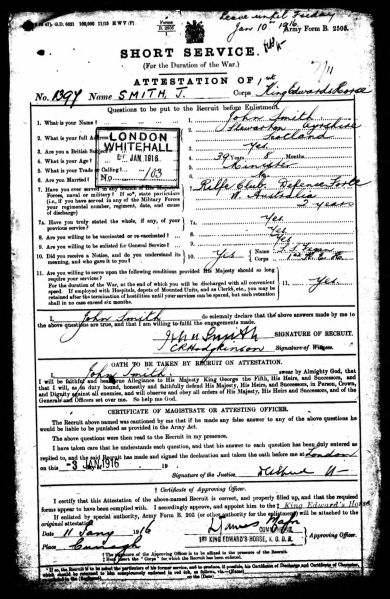 Leave until Friday
Jan 10th 1916
G.D. 6521 100,000 11/15 H W V (P)
Forms
B. 2505
Army Form B. 2505.
SHORT SERVICE.
(For the Duration of the War.)
ATTESTATION OF
No. 1397 Name SMITH J. Corps 1st King Edwards Horse
Questions to be put to the Recruit before Enlistment.
1. What is your Name? 1. John Smith
2. What is your full Address? 2. Stewarton Ayrshire
Scotland
3. Are you a British Subject? 3. Yes
4. What is your Age? 4. 39 Years 8 Months
5. What is your Trade or Calling? 5. Minister
6. Are you Married? 6. No
LONDON
WHITEHALL
JAN. 1916
No 103
7. Have you ever served in any branch of His Majesty's
Forces, naval or military? If so, state particulars
(i.e., if you have served in any of the Military Forces
your regimental number, regiment, date, and cause
of discharge)
7. Rifle Club Defence Force
W. Australia
2 years
7a. Have you truly stated the whole, if any, of your
previous service? 7a. Yes
8. Are you willing to be vaccinated or re-vaccinated? 8. Yes
9. Are you willing to be enlisted for General Service? 9. Yes
10. Did you receive a Notice, and do you understand its
meaning, and who gave it to you? 10. Yes Name
Corps
11. Are you willing to serve upon the following conditions provided His Majesty should so long
require your services?
For the duration of the War, at the end of which you will be discharged with all convenient
speed. If employed with Hospitals, depots of Mounted Units, as Clerks, etc., you may be
retained after the termination of hostilities until your services can be spared, but such retention
shall in no case exceed six months.
11. Yes.
I, John Smith do solemnly declare that the above answers made by me to
the above questions are true, and that I am willing to fulfil the engagements made.
John Smith SIGNATURE OF RECRUIT.
C R Hodgkinson Signature of Witness.
OATH TO BE TAKEN BY RECRUIT ON ATTESTATION.
I, John Smith swear by Almighty God, that
I will be faithful and bear true Allegiance to His Majesty King George the Fifth, His Heirs, and Successors, and
that I will, as in duty bound, honestly and faithfully defend His Majesty, His Heirs, and Successors, in Person, Crown,
and Dignity against all enemies, and will observe and obey all orders of His Majesty, His Heirs and Successors, and of the
Generals and Officers set over me. So help me God.
CERTIFICATE OF MAGISTRATE OR ATTESTING OFFICER.
The Recruit above named was cautioned by me that if he made any false answer to any of the above questions he
would be liable to be punished as provided in the Army Act.
The above questions were then read to the Recruit in my presence.
I have taken care that he understands each question, and that his answer to each question has been duly entered as
replied to, and the said Recruit has made and signed the declaration and taken the oath before me at London
on this -3 JAN. 1916 19
Signature of the Justice
† Certificate of Approving Officer.
I certify that this Attestation of the above-named Recruit is correct, and properly filled up, and that the required
forms appear to have been complied with. I accordingly approve, and appoint him to the ‡ King Edward's Horse
If enlisted by special authority, Army Form B. 203 (or other authority for the enlistment) will be attached to the
original attestation.
Date 11 Jany 1916
Place Curragh
Major
1ST KING EDWARD'S HORSE, K. O. D. R.
Approving Officer
† The signature of the Approving Officer is to be affixed in the presence of the Recruit.
‡ Here insert the "Corps" for which the Recruit has been enlisted.